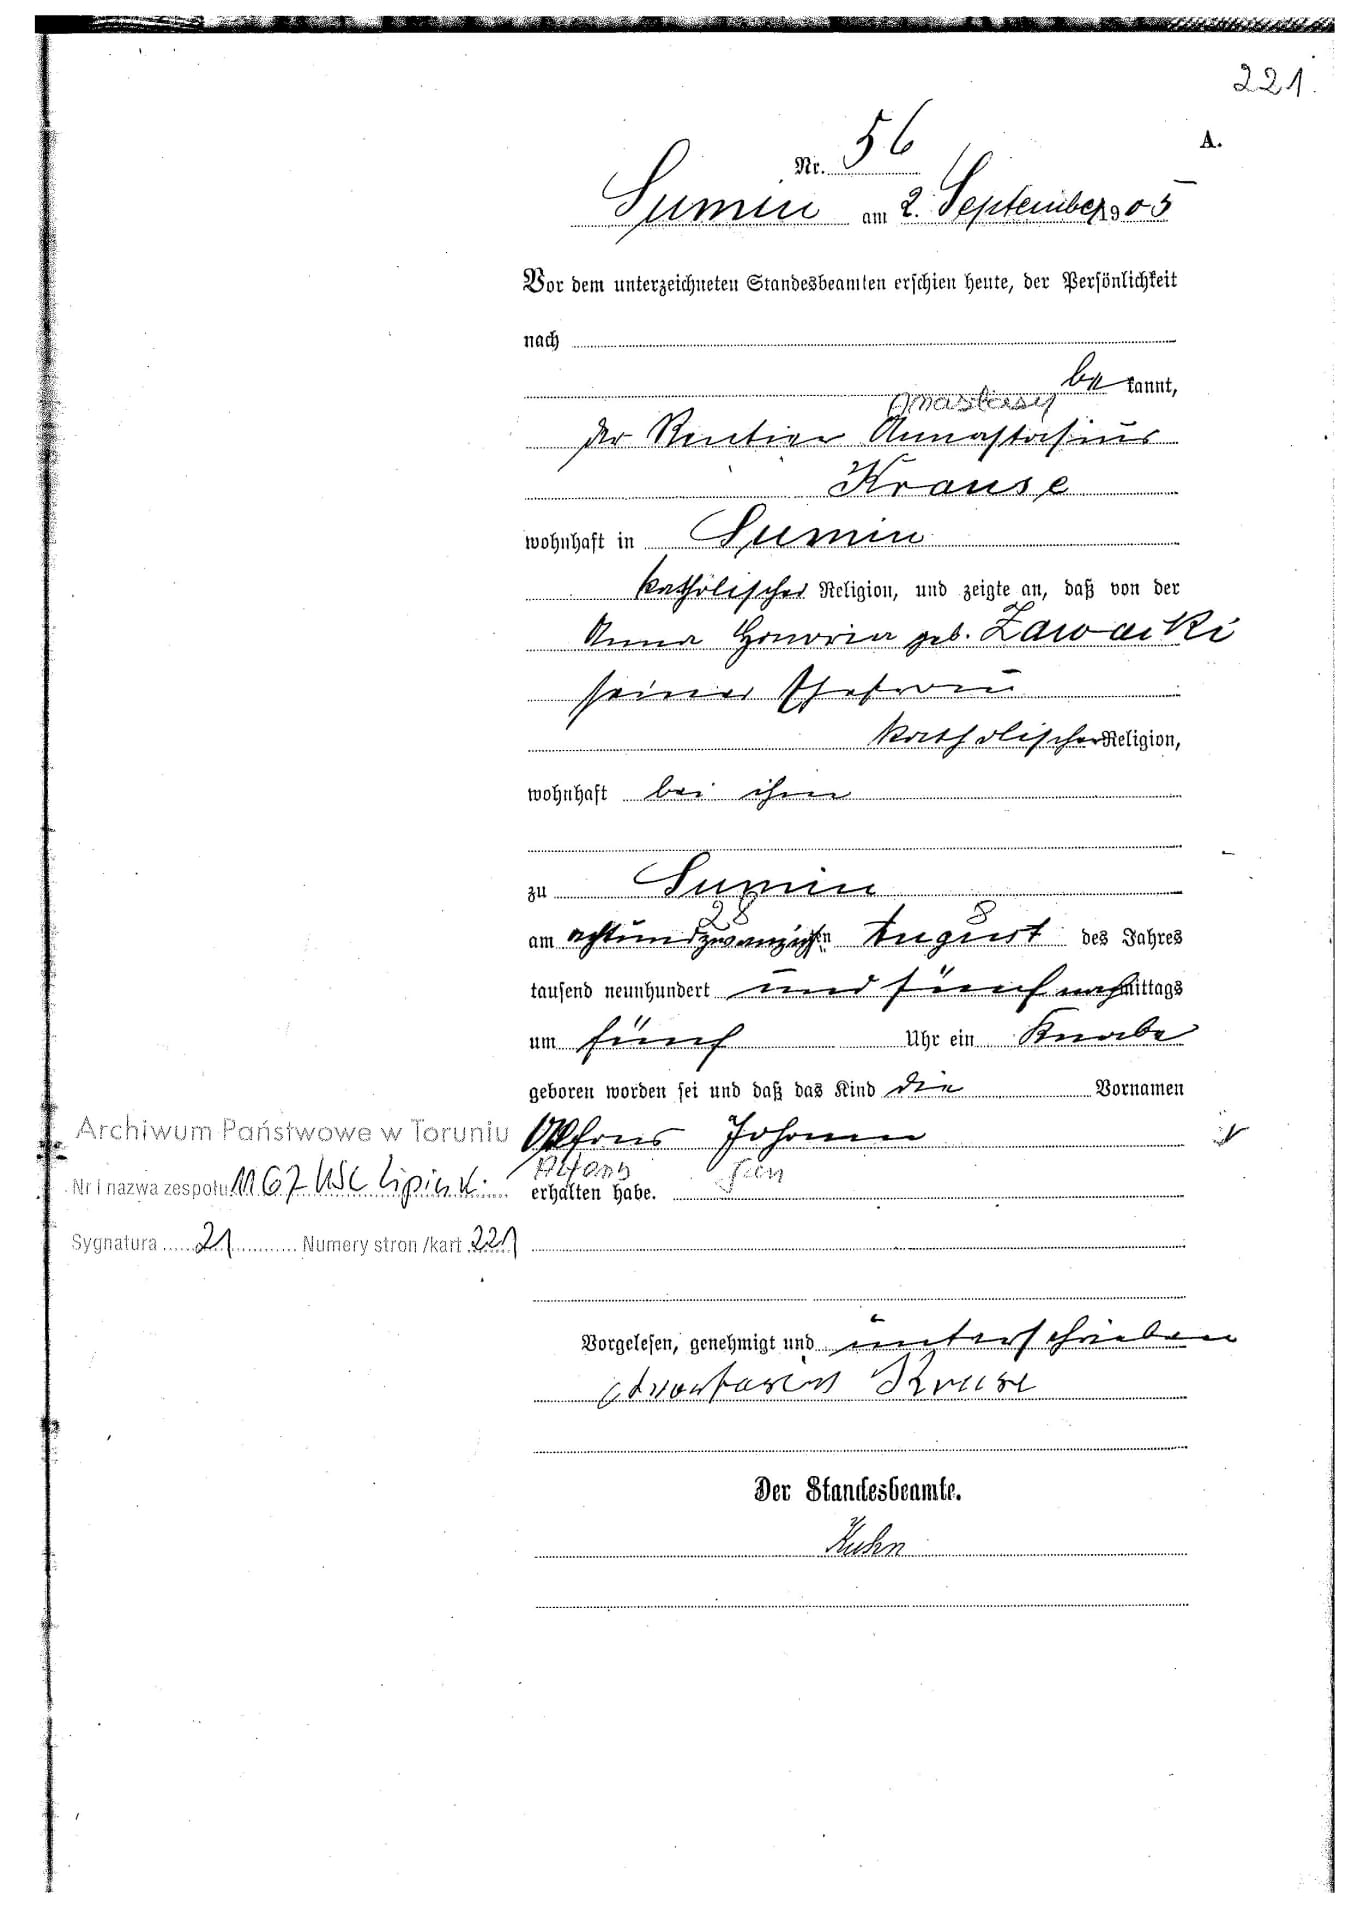 221.
A.
Nr. 56
Sumin am 2. September 1905
Vor dem unterzeichneten Standesbeamten erschien heute, der Persönlichkeit
nach
be kannt,
Anastazy
der Rentier Annastasius
Krause
wohnhaft in Sumin
katholischer Religion, und zeigte an, daß von der
Anna Honoria geb. Zawacki
seiner Ehefrau
katholischer Religion,
wohnhaft bei ihm
zu Sumin
28 8
am achtundzwanzigsten August des Jahres
tausend neunhundert und fünf nachmittags
um fünf Uhr ein Knabe
geboren worden sei und daß das Kind die Vornamen
Alfons Johann
Alfons Jan
erhalten habe.
Archiwum Państwowe w Toruniu
Nr i nazwa zespołu 1167 USC Lipink.
Sygnatura 21 Numery stron /kart 221
Vorgelesen, genehmigt und unterschrieben
Anastasius Krause
Der Standesbeamte.
Kuhn